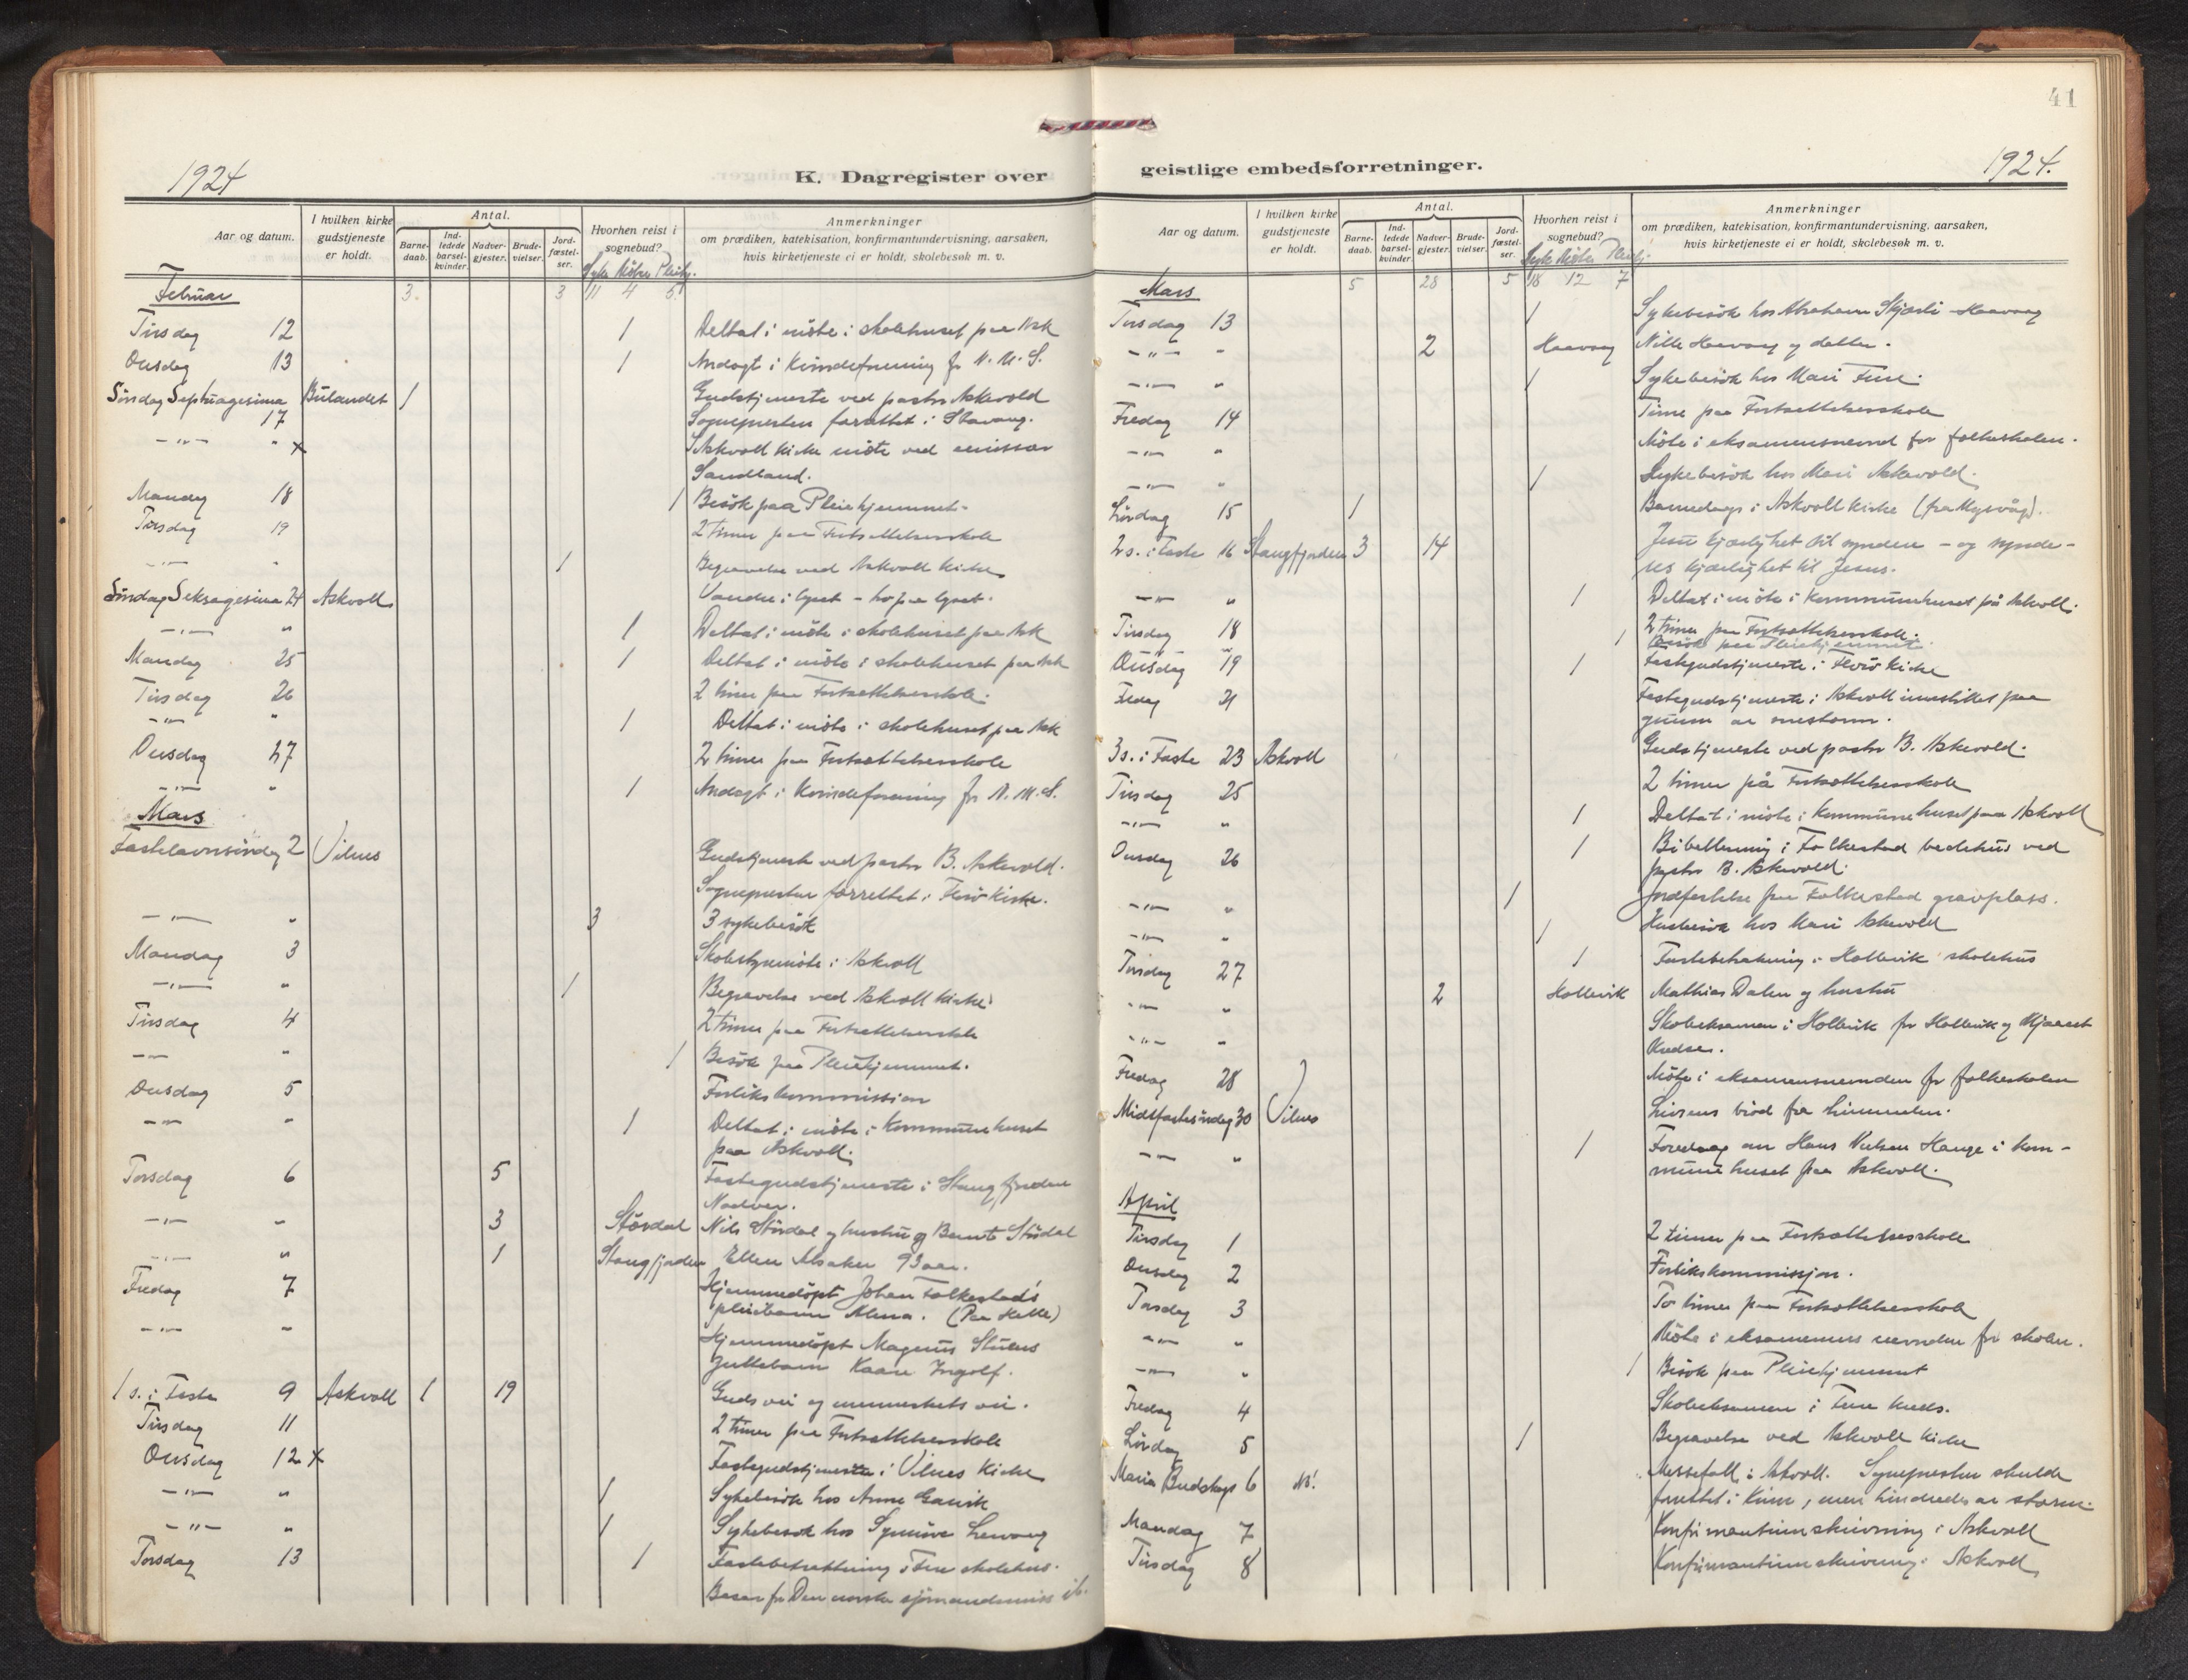 41
1924
K. Dagregister over
Aar og datum.
I hvilken kirke gudstjeneste er holdt.
Antal.
Barne-daab.
Ind-ledede barsel-kvinder.
Nadver-gjester.
Brude-vielser.
Jord-fæstel-ser.
Hvorhen reist i sognebud?
Syke Möter Pleiehj.
Anmerkninger
om prædiken, katekisation, konfirmantundervisning, aarsaken,
hvis kirketjeneste ei er holdt, skolebesøk m. v.
Februar 3. 3 11 4 5
Tirsdag 12 1 Deltat i möte i skolehuset paa Ask
Onsdag 13 1 Andagt i Kvindeforening for N. M. S.
Söndag Septuagesima Bulandet 1 Gudstjeneste ved pastor Askvold
17 Sognepresten forrettet i Stavang.
-"- " x I Askvoll kirke möte ved emissær
Sandland.
Mandag 18 1 Besök paa Pleiehjemmet.
Tirsdag 19 2 timer paa Fortsettelsesskole
-"- " 1 Begravelse ved Askvoll kirke
Söndag Seksagesima 24 Askvoll Vandre i lyset - ho paa lyset.
-"- " 1 Deltat i möte i skolehuset paa Ask
Mandag 25 1 Deltat i möte i skolehuset paa Ask
Tirsdag 26 2 timer paa Fortsettelsesskole.
-"- " 1 Deltat i möte i skolehuset paa Ask
Onsdag 27 2 timer paa Fortsættelsesskole
-"- " 1 Andagt i Kvindeforening for N. M. S.
Mars
Fastelavnssöndag 2 Vilnes Gudstjeneste ved pastor B. Askevold.
Sognepresten forrettet i Florö Kirke.
-"- " 3 3 sykebesök
Mandag 3 Skolestyremöte i Askvoll
-"- " 1 Begravelse ved Askvoll kirke
Tirsdag 4 2 timer paa Fortsettelsesskole
-"- " 1 Besök paa Pleiehjemmet.
Onsdag 5 Forlikskommission
-"- " 1 Deltat i möte i Kommunehuset
paa Askvoll.
Torsdag 6 5 Fastegudstjeneste i Stangfjorden
Nadver.
-"- " 3 Stövdal Nils Stövdal og hustru og Bernt Stövdal
-"- " 1 Stangfjorden Ellen Alsaker 93 aar.
Fredag 7 Hjemmedöpt Johan Folkestads
pleiebarn Alma. (Paa Helle)
-"- " Hjemmedöpt Magnus
guttebarn Kaare Ingolf.
1 s. i Faste 9 Askvoll 1 19 Guds vei og menneskets vei.
Tirsdag 11 2 timer paa Fortsettelsesskole
Onsdag 12 x Fastegudstjeneste i Vilnes Kirke
-"- " 1 Sykebesök hos Anne Gavik
-"- " 1 Sykebesök hos Synnöve
Torsdag 13 1 Fastebetraktning i Fure skolehus.
Basar for Den norske sjömandsmiss
geistlige embedsforretninger.
1924.
Aar og datum.
I hvilken kirke gudstjeneste er holdt.
Antal.
Barne-daab.
Ind-ledede barsel-kvinder.
Nadver-gjester.
Brude-vielser.
Jord-fæstel-ser.
Hvorhen reist i sognebud?
Syke Möter Pleiehj.
Anmerkninger
om prædiken, katekisation, konfirmantundervisning, aarsaken,
hvis kirketjeneste ei er holdt, skolebesøk m. v.
Mars 5 28 5 18 12 7
Torsdag 13 1 Sykebesök hos Abraham Skjærli Haavaag
-"- " 2 Haavaag Nille Haavaag og datter.
-"- " 1 Sykebesök hos Mari Fure.
Fredag 14 Time paa Fortsettelsesskole
-"- " Möte i eksamensnemnd for folkeskolen.
-"- " 1 Sykebesök hos Mari Askevold.
Lördag 15 1 Barnedaap i Askvoll kirke
2 s. i Faste 16 Stangfjorden 3 14 Jesu kjærlighet til synderen - og synde-
res kjærlighet til Jesus.
-"- " 1 Deltat i möte i Kommunehuset på Askvoll.
Tirsdag 18 2 timer paa Fortsættelsesskole.
1 Besök paa Pleiehjemmet.
Onsdag 19 1 Fastegudstjeneste i Florö kirke
Fredag 21 Fastegudstjeneste i Askvoll innstillet paa
grunn av snestorm.
3 s. i Faste 23 Askvoll Gudstjeneste ved pastor B. Askevold.
Tirsdag 25 2 timer på Fortsættelsesskole
-"- " 1 Deltat i möte i Kommunehuset paa Askvoll
Onsdag 26 1 Bibellesning i Folkestad bedehus ved
pastor B. Askevold.
-"- " 1 Jordfestelse paa Folkestad gravplass.
-"- " 1 Husbesök hos Mari Askevold
Torsdag 27 1 Fastebetraktning i Hollevik skolehus
-"- " 2 Hollevik Mathias Dalen og hustru
-"- " Skoleeksamen i Hollevik for Hollevik og
Kredser.
Fredag 28 Möte i eksamensnemnden for folkeskolen
Midtfastesöndag 30 Vilnes Livsens bröd fra himmelen.
-"- " 1 Foredrag om Hans Nielsen Hauge i Kom-
munehuset paa Askvoll.
April
Tirsdag 1 2 timer paa Fortsættelsesskole
Onsdag 2 Forlikskommissjon.
Torsdag 3 To timer paa Fortsættelsesskole
-"- " Möte i eksamensnevnden for skolen.
-"- " 1 Besök paa Pleiehjemmet
Fredag 4 Skoleeksamen i Fure kreds.
Lördag 5 1 Begravelse ved Askvoll kirke
Maria Budskaps 6 Messefall i Askvoll. Sognepresten skulde
forrettet i Kinn, men hindredes av storm.
Mandag 7 Konfirmantinnskrivning i Askvoll
Tirsdag 8 Konfirmantinnskrivning i Askvoll